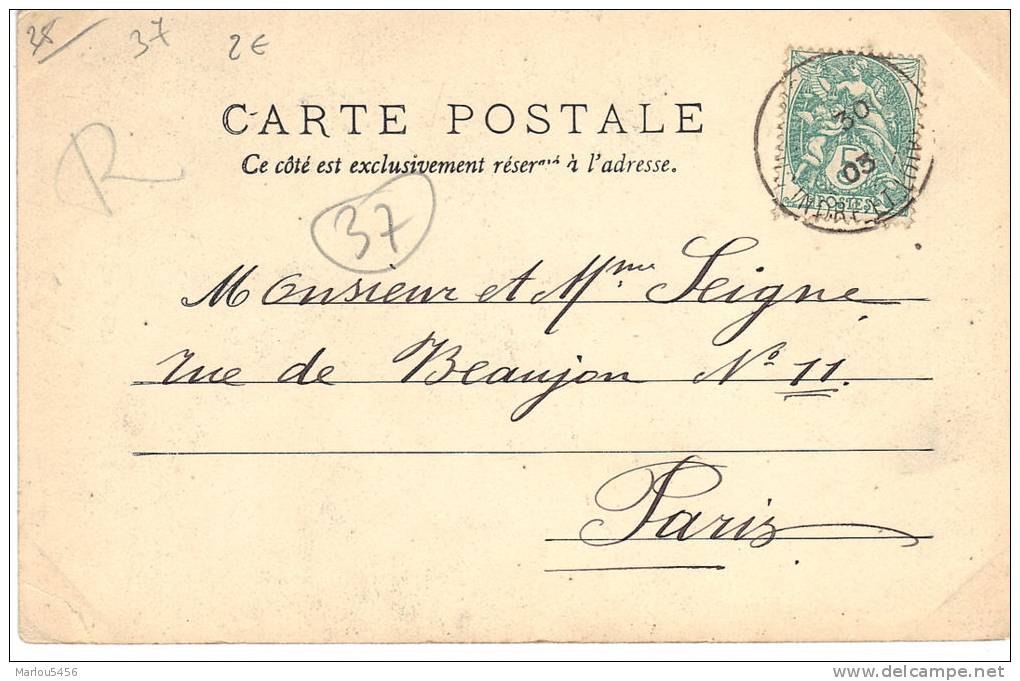 37
2€
CARTE POSTALE
Ce côté est exclusivement réservé à l'adresse.
R
37
30
03
5
POSTES
INDRE ET
Monsieur et Mme Seigne
rue de Beaujon No 11.
Paris
Marlou5456
http://www.delcampe.net